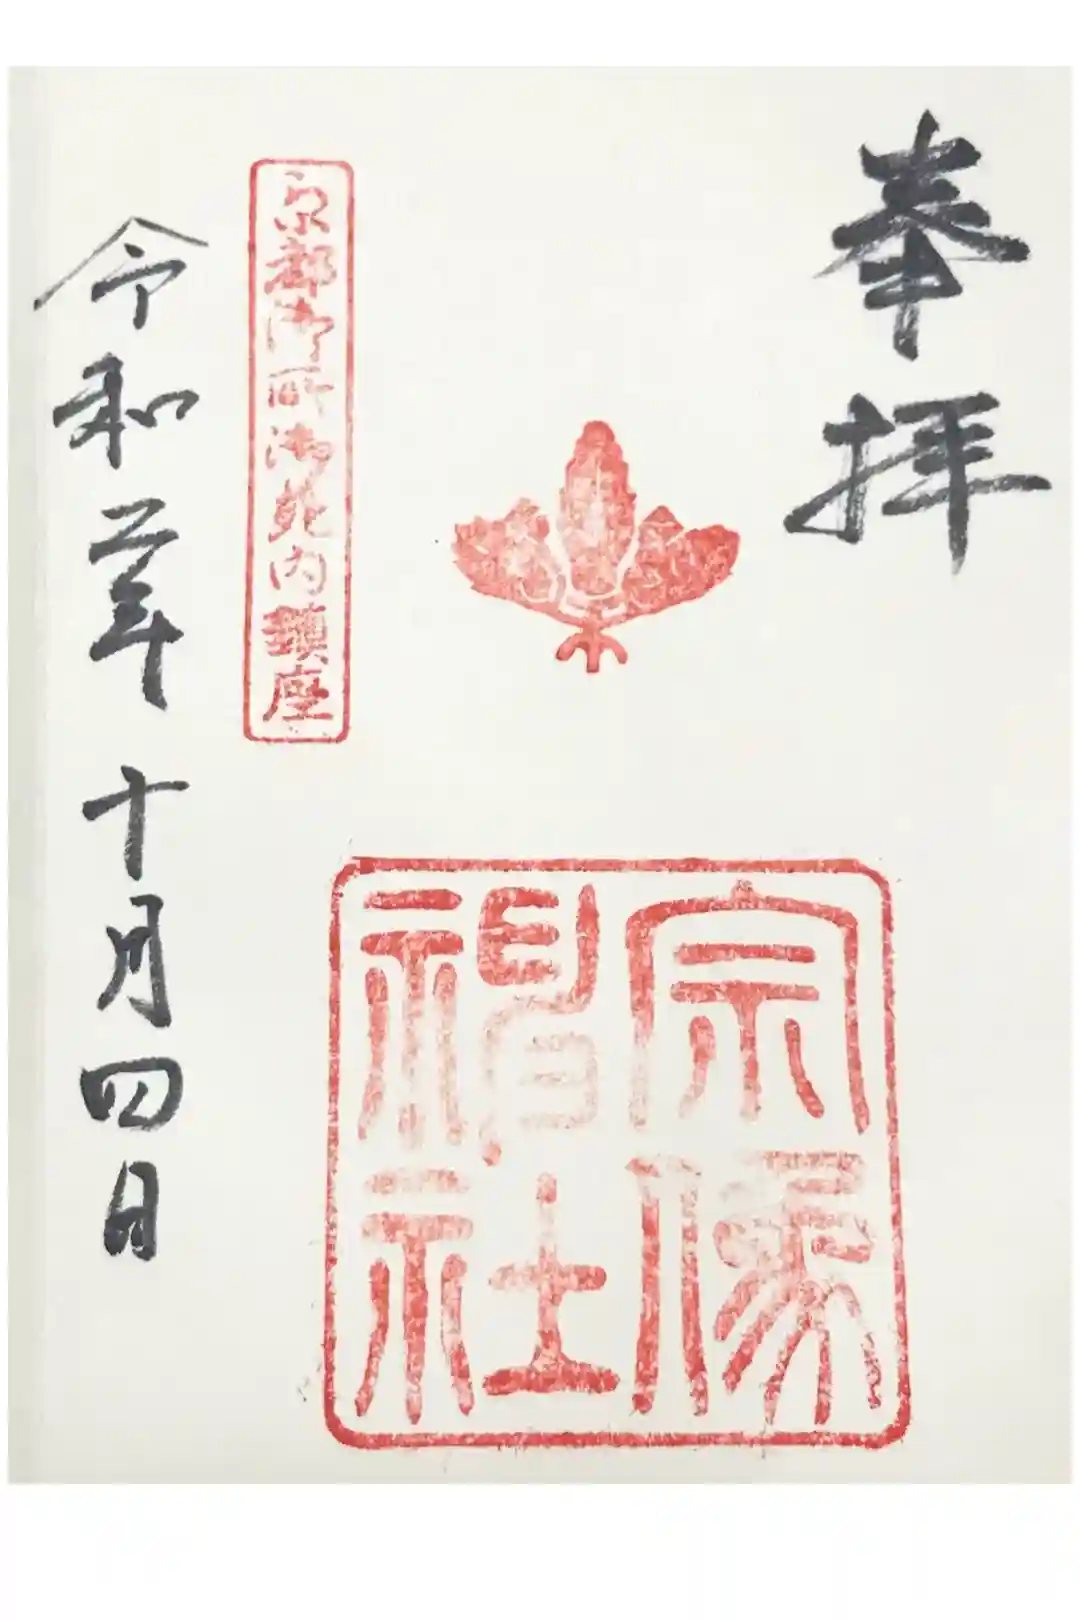 奉拝
宗像
神社
京都御所御苑内鎮座
令和二年十月四日